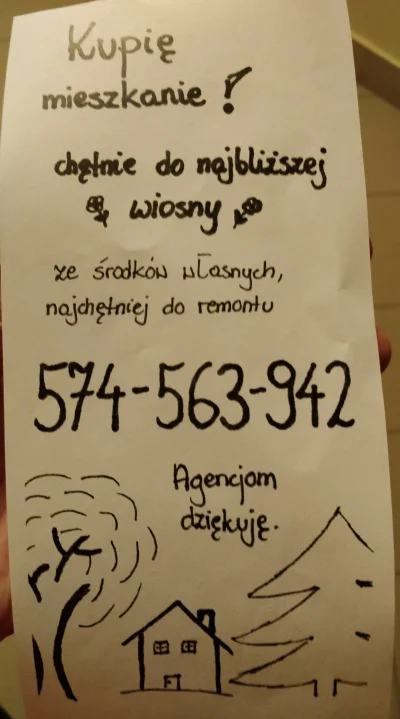 Kupię
mieszkanie !
chętnie do najbliższej
wiosny
ze środków własnych,
najchętniej do remontu
574-563-942
Agencjom
dziękuję.